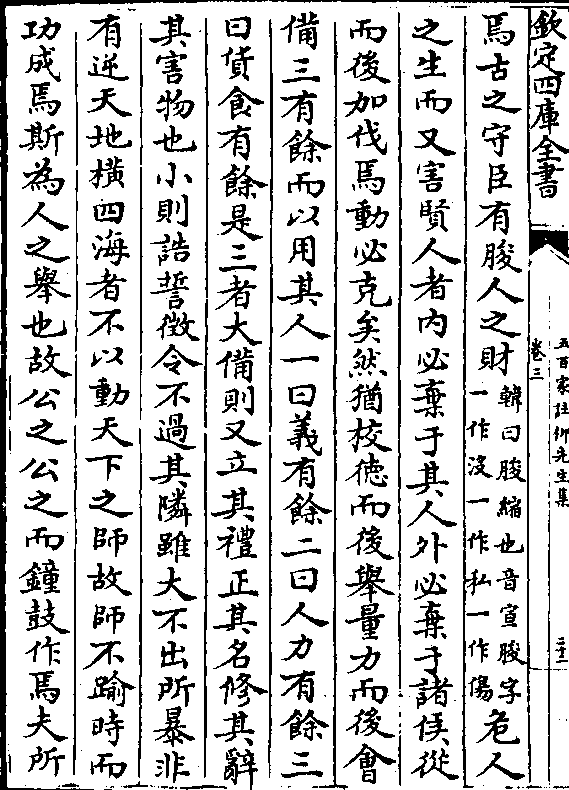 欽定四庫全書
五百家註柳先生集
卷三
二十二
焉古之守臣有朘人之財韓曰朘縮也音宣朘字
一作沒一作私一作傷危人
之生而又害賢人者内必棄于其人外必棄于諸侯從
而後加伐焉動必克矣然猶校德而後舉量力而後會
備三有餘而以用其人一曰義有餘二曰人力有餘三
曰貨食有餘是三者大備則又立其禮正其名修其辭
其害物也小則誥誓徵令不過其隣雖大不出所暴非
有逆天地橫四海者不以動天下之師故師不踰時而
功成焉斯為人之舉也故公之公之而鐘鼓作焉夫所